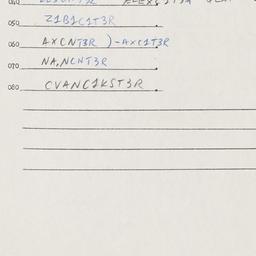 050 Z1B1C1T3R
060 AXCNT3R )-AXC1T3R
070 NA,NCNT3R
080 CVANC1KST3R